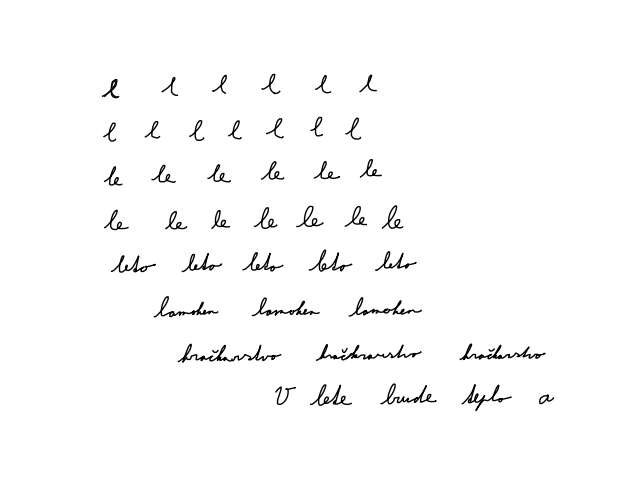 l l l l l l
l l l l l l l
le le le le le le
le le le le le le le
leto leto leto leto leto
lamohen lamohen lamohen
hračkarstvo hračkrarstvo hračkarstvo
V lete bude teplo a